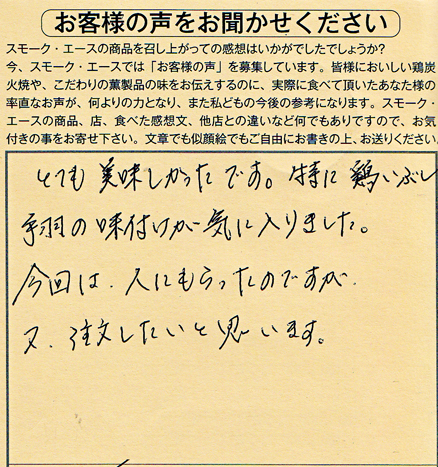 お客様の声をお聞かせください
スモーク・エースの商品を召し上がっての感想はいかがでしたでしょうか?
今、スモーク・エースでは「お客様の声」を募集しています。皆様においしい鶏炭
火焼や、こだわりの薫製品の味をお伝えするのに、実際に食べて頂いたあなた様の
率直なお声が、何よりの力となり、また私どもの今後の参考になります。スモーク・
エースの商品、店、食べた感想文、他店との違いなど何でもありですので、お気
付きの事をお寄せ下さい。文章でも似顔絵でもご自由にお書きの上、お送りください。
とても美味しかったです。特に鶏いぶし
手羽の味付けが気に入りました。
今回は、人にもらったのですが、
又、注文したいと思います。